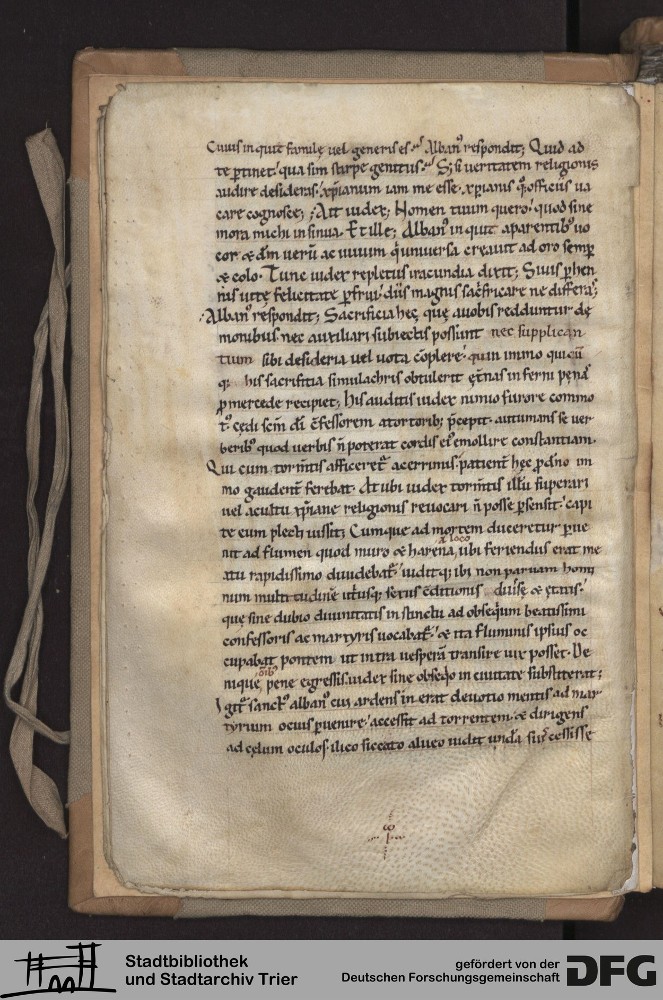 Cuius inquit familę uel generis es? Alban᷒ respondit; Quid ad
te ꝑtinet qua sim stirpe genitus? S; si ueritatem religionis
audire desideras. xp̄ianum iam me esse. xpianis q; officiis ua
care cognosce; Ait iudex; Nomen tuum quero quod sine
mora michi insinua. Et ille; Alban᷒ inquit a parentib᷒ uo
cor & dm̄ uerū ac uiuum q̇ uniuersa creauit adoro semꝑ
& colo. Tunc iudex repletus iracundia dixit; Si uis ꝑhen
nis uitę felicitate ꝑfrui diis magnis sac̓ficare ne differas;
Alban᷒ respondit; Sacrificia hec quę a uobis redduntur dę
monibus nec auxiliari subiectis possunt nec supplican
tium sibi desideria uel uota cōplere. quin immo quicū
q; his sacrifitia simulachris obtulerit ęt̄nas inferni pęnas
ꝓ mercede recipiet; His auditis iudex nimio furore commo
t᷒ cędi scm̄ dī ɔ̄fessorem a tortorib; p̄cepit. autumans se uer
berib᷒ quod uerbis n̄ poterat cordis ei᷒ emollire constantiam.
Qui cum torm̄tis afficeret᷑ acerrimis patient̄ hęc ꝓ dn̄o im
mo gaudent̄ ferebat. At ubi iudex torm̄tis illū superari
uel a cultu xp̄iane religionis reuocari n̄ posse ꝑsensit. capi
te eum plecti iussit; Cumque ad mortem duceretur ꝑue
nit ad flumen quod muro & harena, a loco ubi feriendus erat me
atu rapidissimo diuidebat᷑. uiditq; ibi non paruam homi
num multitudinē ut̓usq; sexus ɔ̄ditionis diuisę & ętatis.
quę sine dubio diuinitatis instinctu ad obseq̇um beatissimi
confessoris ac martyris uocabat᷑. & ita fluminis ipsius oc
cupabat pontem ut intra uesperā transire uix posset. De
nique om̄ib᷒ pene egressis iudex sine obseq̇o in ciuitate substiterat;
Igit᷑ sanct᷒ alban᷒ cui ardens inerat deuotio mentis ad mar
tyrium ocius ꝑuenire. accessit ad torrentem. & dirigens
ad cęlum oculos ilico siccato alueo uidit undā suis cessisse
Stadtbibliothek
und Stadtarchiv Trier
gefördert von der
Deutschen Forschungsgemeinschaft
DFG